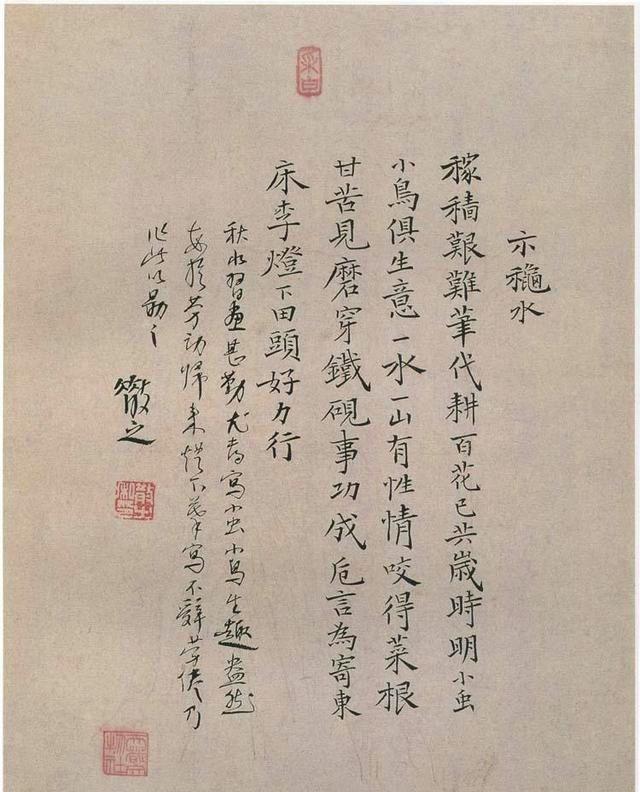 示龝水
稼穡艱難筆代耕百花已共歲時明小虫
小鳥俱生意一水一山有性情咬得菜根
甘苦見磨穿鐵硯事功成卮言為寄東
床李燈下田頭好力行
秋水習畫甚勤尤喜寫小虫小鳥生趣盎然
每於勞動歸來燈下寫不辭勞倦乃
作此以勗之
之